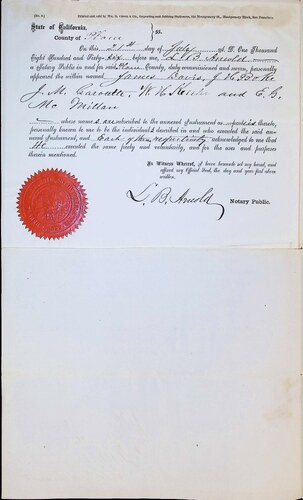 State of California,
County of
} ss.
On this 21st day of July A. D. One Thousand
Eight Hundred and Sixty Six before me, L. B. Arnold —
a Notary Public in and for said County, duly commissioned and sworn, personally
appeared the within named James Davis, J. H.
J. M. W. H. and E. B.
Mc Millan
— whose names are subscribed to the annexed instrument as parties thereto,
personally known to me to be the individuals described in and who executed the said an-
nexed instrument, and Each of them respectively acknowledged to me that
He executed the same freely and voluntarily, and for the uses and purposes
therein mentioned.
In Witness Whereof, I have hereunto set my hand, and
affixed my Official Seal, the day and year first above
written.
L. B. Arnold Notary Public.